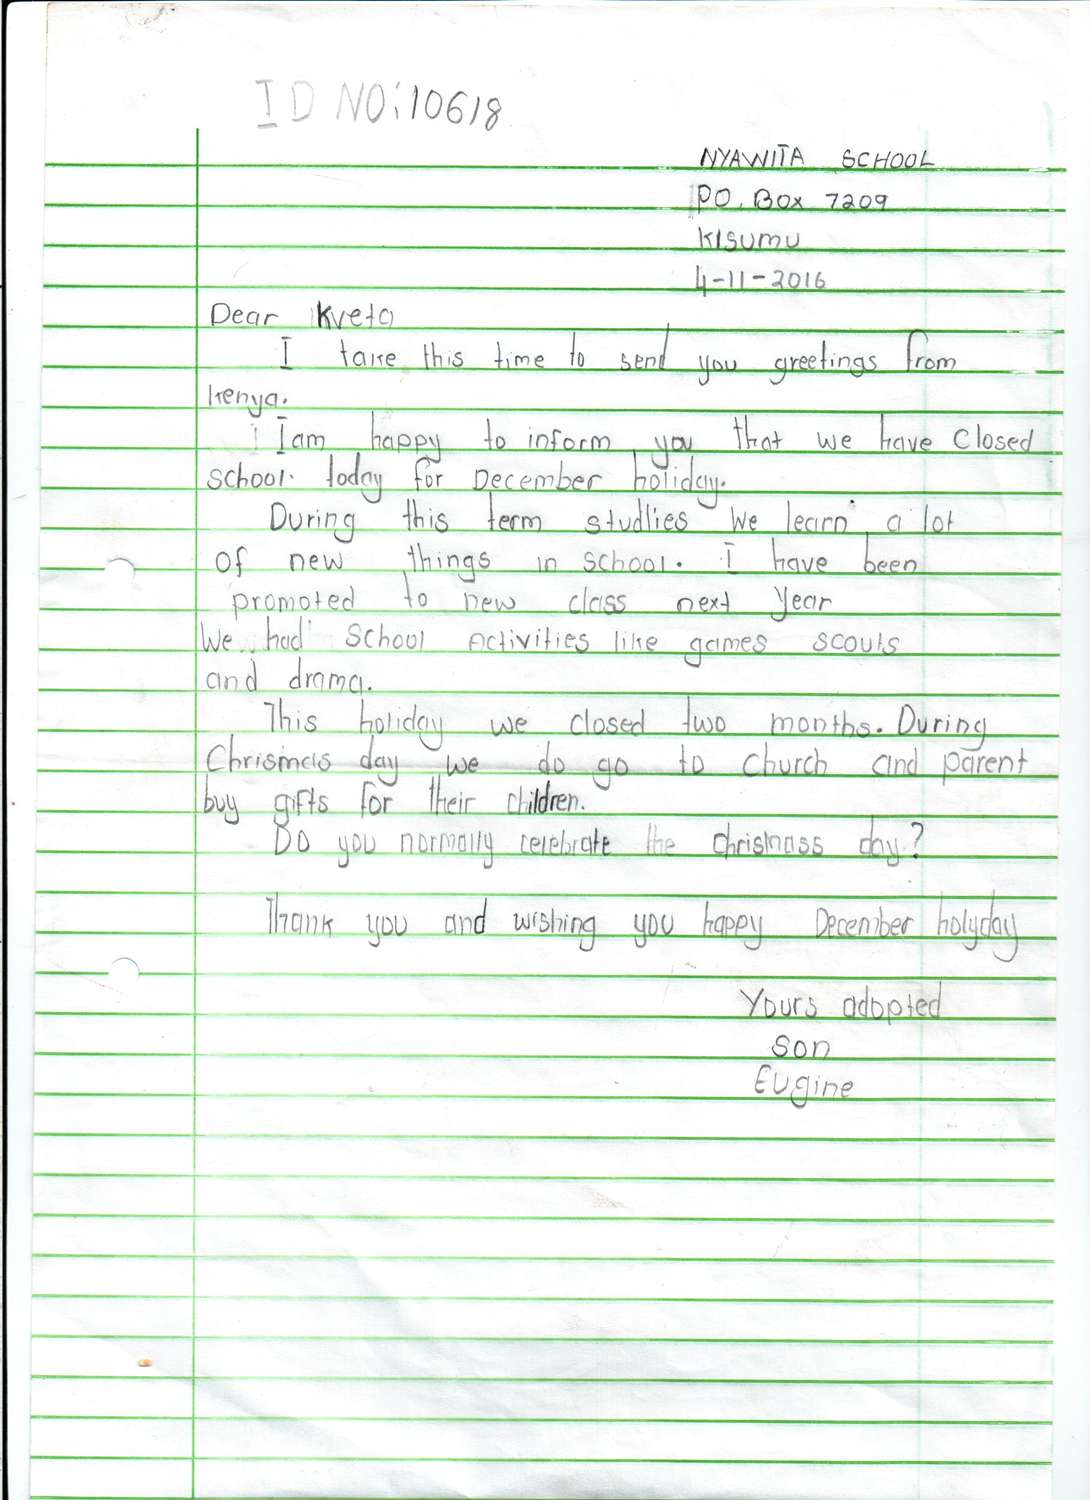 ID NO: 10618
NYAWITA SCHOOL
P.O. Box 7209
KISUMU
4-11-2016
Dear Kveta
I take this time to send you greetings from
Kenya.
I am happy to inform you that we have closed
school. today for December holiday.
During this term studlies we learn a lot
of new things in school. I have been
promoted to new class next year
We had school Activities like games scouts
and drama.
This holiday we closed two months. During
Chrismas day we do go to church and parent
buy gifts for their children.
Do you normally celebrate the chrismass day?
Thank you and wishing you happy December holyday
Yours adopted
son
Eugine